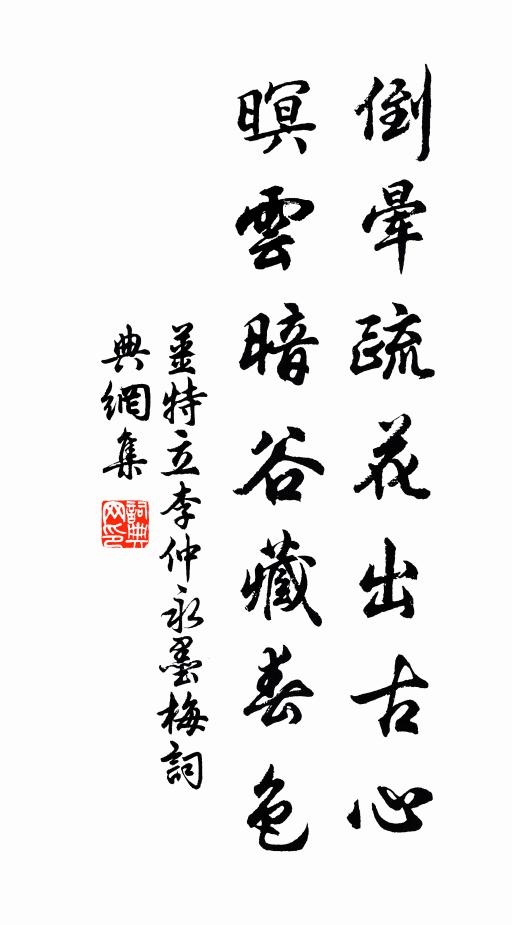 倒暈疏花出古心
暝雲暗谷藏春色
姜特立李仲永墨梅詞
典網集
詞典
网印